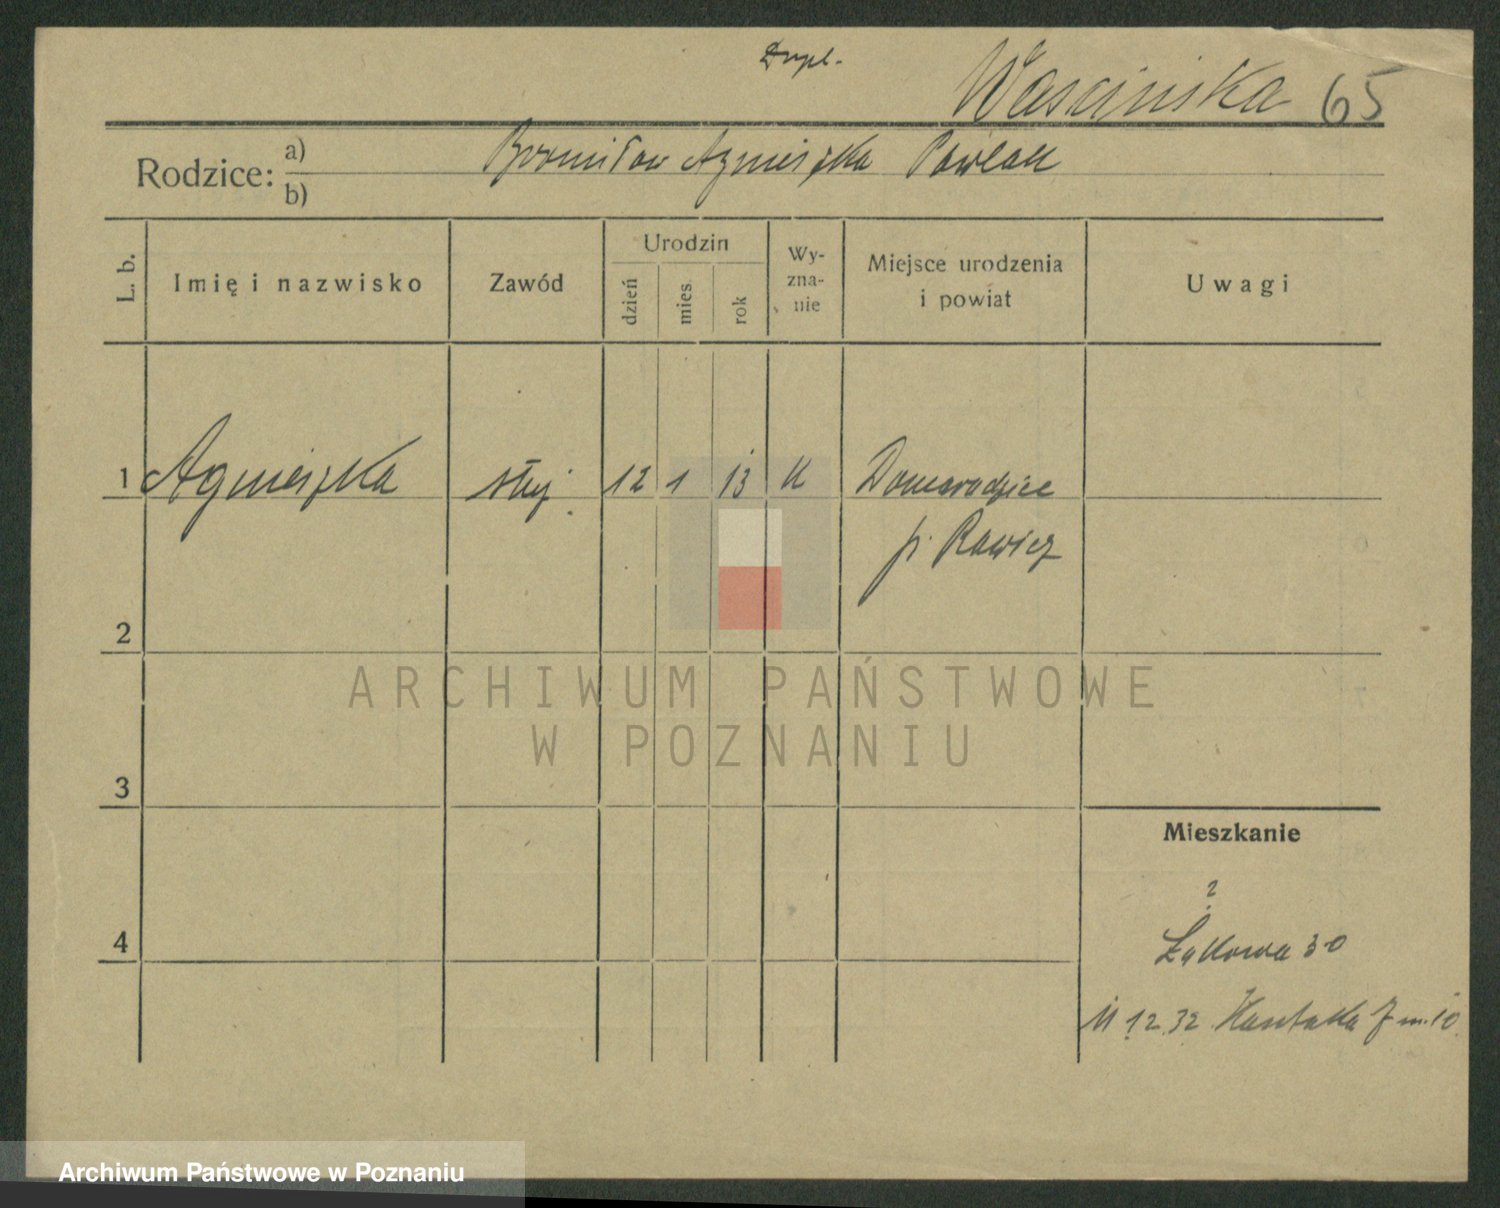 Dupl.
Waścińska 65
Rodzice: a) b)
Bronisław Agnieszka Pawlak
L. b.
Imię i nazwisko
Zawód
Urodzin
dzień
mies.
rok
Wy-
zna-
nie
Miejsce urodzenia
i powiat
Uwagi
1 Agnieszka służ. 12 1 13 k Domaradzice
p. Rawicz
2
ARCHIWUM PAŃSTWOWE
W POZNANIU
3
Mieszkanie
?
4
Łąkowa 30
11.12.32. Kantaka 7 m. 10.
Archiwum Państwowe w Poznaniu